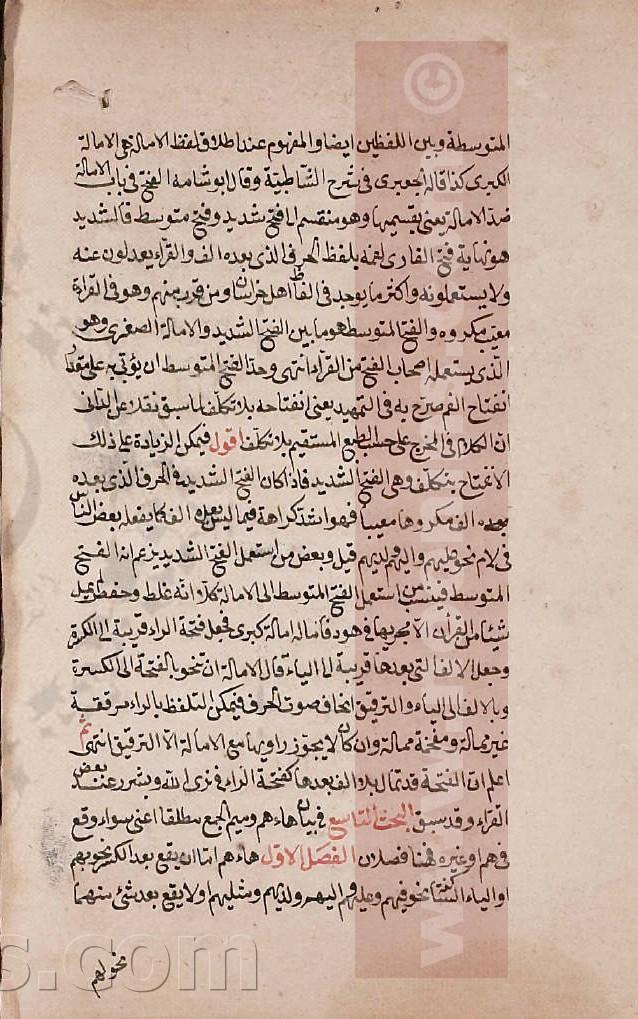 المتوسطة وبين اللفظين ايضا والمفهوم عند اطلاق لفظ الامالة هى الامالة
الكبرى كذا قاله الجعبرى فى شرح الشاطبية وقال ابو شامه الفتح فى باب الامالة
ضد الامالة يعنى بقسيمها وهو منقسم الى فتح شديد وفتح متوسط فالشديد
هو نهاية فتح القارى لفمه بلفظ الحرف الذى بعده الف والقراء يعدلون عنه
ولا يستعملونه واكثر ما يوجد فى الفاظ اهل خراسان ومن قرب منهم وهو فى القراءة
معيب مكروه والفتح المتوسط هو ما بين الفتح الشديد والامالة الصغرى وهو
الذى يستعمله اصحاب الفتح من القراء انتهى وحد الفتح المتوسط ان يؤتى به على مقدار
انفتاح الفم صرح به فى التمهيد يعنى انفتاحه بلا تكلف لما سبق نقلا عن الدانى
ان الكلام فى المخرج على حسب الطبع المستقيم بلا تكلف اقول فيمكن الزيادة على ذلك
الانفتاح بتكلف وهى الفتح الشديد فاذا كان الفتح الشديد فى الحرف الذى بعده
الف مكروها معيبا فهو اشد كراهة فيما ليس بعده الف كما يفعله بعض الناس
فى لام نحو عليهم واليهم ولديهم قيل وبعض من استعمل الفتح الشديد يزعم انه الفتح
المتوسط فينسب من استعمل الفتح المتوسط الى الامالة كلا وانه غلط وحفص لم يمل
شيئا من القرآن الا مجريها فى هود فاماله امالة كبرى فجعل فتحة الراء قريبة الى الكسرة
وجعل الالف التى بعدها قريبة الى الياء قال الامالة ان تنحو بالفتحة الى الكسرة
وبالالف الى الياء والترقيق انحاف صوت الحرف فيمكن التلفظ بالراء مرققة
غير ممالة ومفخمة ممالة وان كان لا يجوز راويها مع الامالة الا الترقيق انتهى ثم
اعلم ان الفتحة قد تمال بلا الف بعدها كفتحة الراء فى نرى الله وبشرر عند بعض
القراء وقد سبق البحث التاسع فى بيان هاء هم وميم الجمع مطلقا اعنى سواء وقع
فى هم او غيره فههنا فصلان الفصل الاول هاء هم اما ان يقع بعد الكسر نحو بهم
او الياء الساكنة نحو فيهم وعليهم واليهم ولديهم ومثليهم او لا يقع بعد شئ منهما
نحو لهم